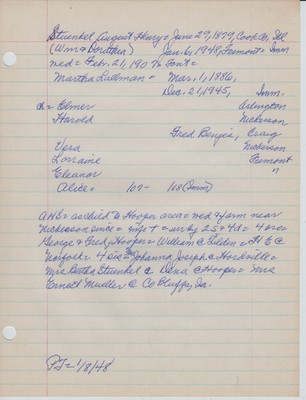 Stuenkel August Henry = June 29, 1879, Cook Co, Ill
(Wm & Dorothea) Jan. 6, 1948, Fremont = Imm
med = Feb. 21, 190 to Font =
Martha Lallman = Mar. 1, 1886,
Dec. 21, 1945, Imm -
ch = Elmer Arlington
Harold Nickerson
Fred Benjes, Craig
Vera Nickerson
Lorraine Fremont
Eleanor "
Alice = 109 - 108 (Imm)
ANS = as child to Hooper area = med & farm near
Nickerson since = inft + = surby 2S & 4d = 4 bro =
George & Fred, Hooper = William & =
Norfolk = 4 sis = Johanna Joseph & Hordville =
Mrs Bertha Stuenkel & Dena & Hooper = Mrs
Ernest Mueller & Co Bluffs, Ia.
PT = 1/8/48